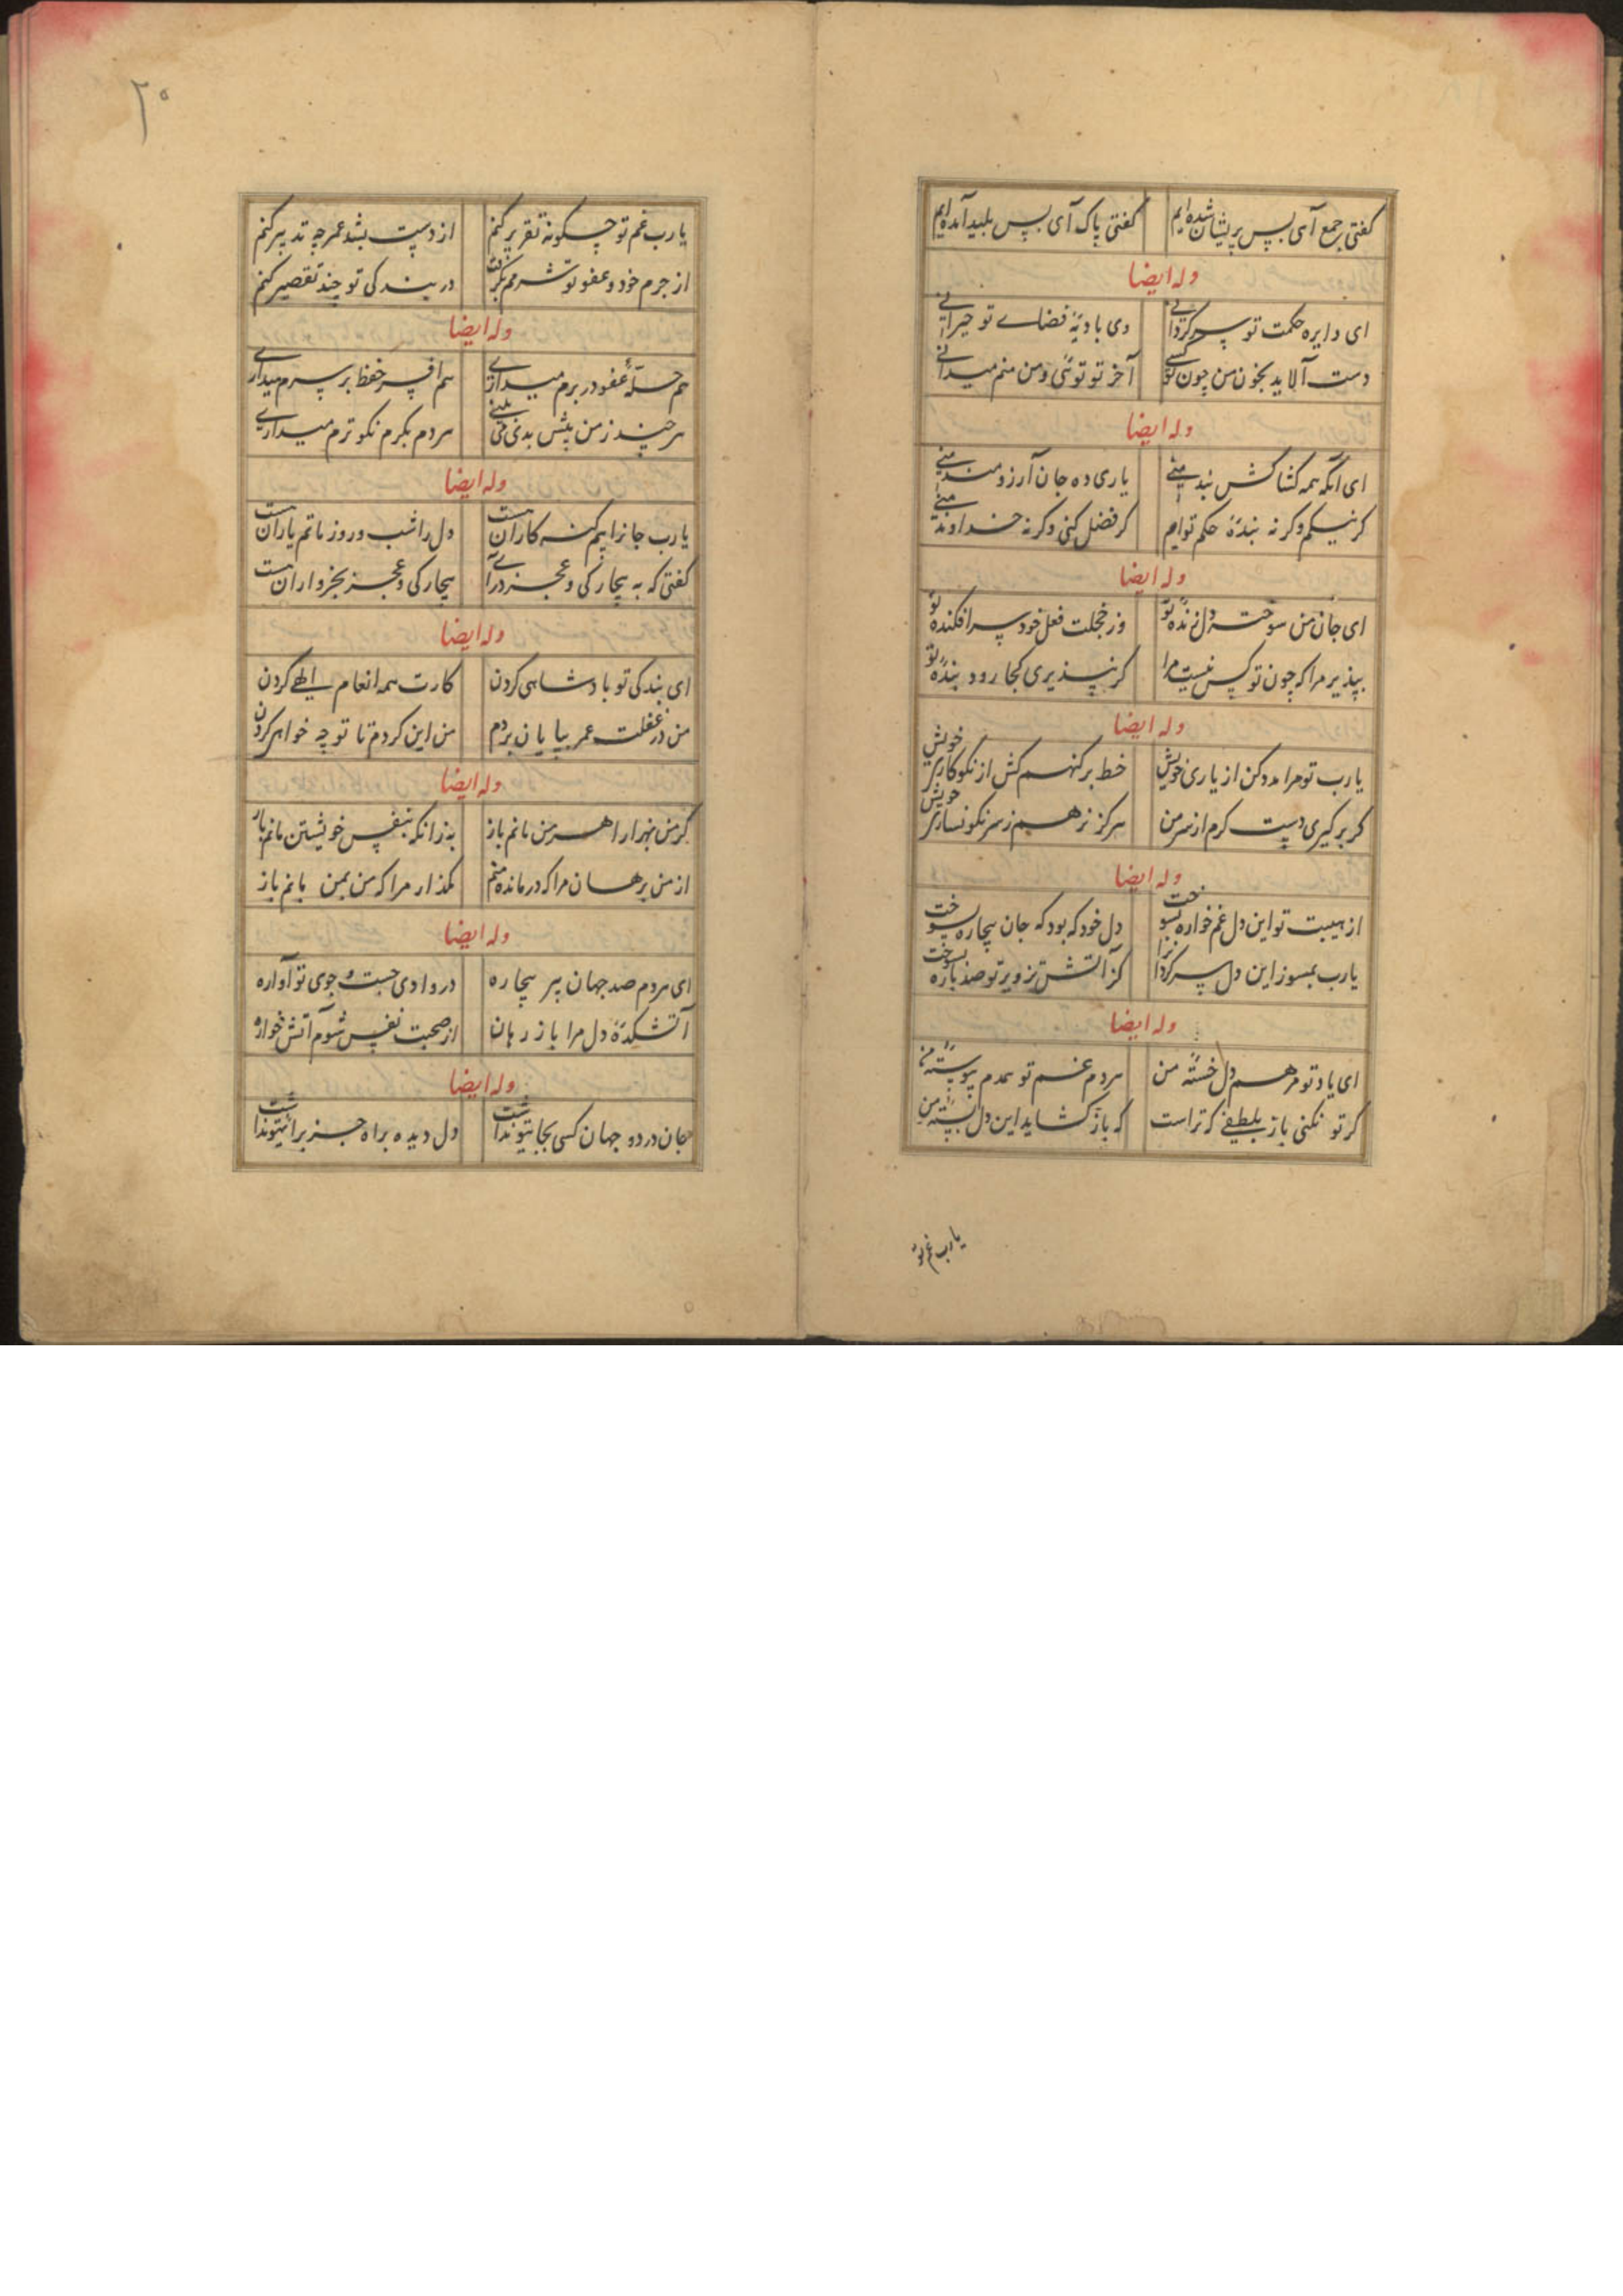 کفتی بر جمع آی بس پریشان شده ایم کفتی پاک آی بس بلید آمده ایم
وله ایضا
ای دایره حکمت تو سرکردانی وی بادیهٔ فضای تو حیرانی
دست آلاید بخون من چون تو کسی آخر تو توئی و من منم میدانی
وله ایضا
ای آنکه همه کشاکش بندمنی یاری ده جان آرزومندمنی
کر نیکم وکر نه بندهٔ حکم توایم کر فضل کنی وکر نه خداوندمنی
وله ایضا
ای جان من سوخته دل زندهٔ تو وز خجلت فعل خود سرافکندهٔ تو
بپذیر مرا که چون تو کس نیست مرا کر نپذیری کجا رود بندهٔ تو
وله ایضا
یارب تو مرا مدد کن از یاری خویش خط بر کنهم کش از نکوکاری خویش
کر برکیری دست کرم از سر من هرکز نرهم ز سرنکونساری خویش
وله ایضا
از هیبت تو این دل غم خواره بسوخت دل خود که بود که جان بیچاره بسوخت
یارب بمسوز این دل سرکردانرا کز آتش تزویر تو صد باره بسوخت
وله ایضا
ای یاد تو مرهم دل خستهٔ من هردم غم تو همدم پیوستهٔ من
کر تو نکنی باز بلطفی که تراست که باز کشاید این دل بستهٔ من
یارب غم تو
۲۰
یارب غم تو چکونه تقریر کنم از دست بشد عمر چه تدبیر کنم
از جرم خود و عفو تو شرمم بکرفت در بندکی تو چند تقصیر کنم
وله ایضا
هم حلهٔ عفو در برم میداری هم افسر حفظ بر سرم میداری
هرچند ز من بیش بدی می بینی هردم بکرم نکوترم میداری
وله ایضا
یارب جانرا بیم کنه کاران هست دل را شب و روز ماتم یاران هست
کفتی که به بیچارکی و عجز درآی بیچارکی و عجز بخرواران هست
وله ایضا
ای بندکی تو بادشاهی کردن کارت همه انعام الهی کردن
من در غفلت عمر بپایان بردم من این کردم تا تو چه خواهی کردن
وله ایضا
کر من بهزار اهرمن مانم باز به زانکه بنفس خویشتن مانم باز
از من برهان مرا که درمانده منم مکذار مرا که من بمن مانم باز
وله ایضا
ای مردم صد جهان بیچاره در وادی جست و جوی تو آواره
آتشکدهٔ دل مرا باز رهان از صحبت نفس شوم آتش خواره
وله ایضا
جان در دو جهان کسی بجا نتوند اشت دل دیده براه جز برا نتوند اشت